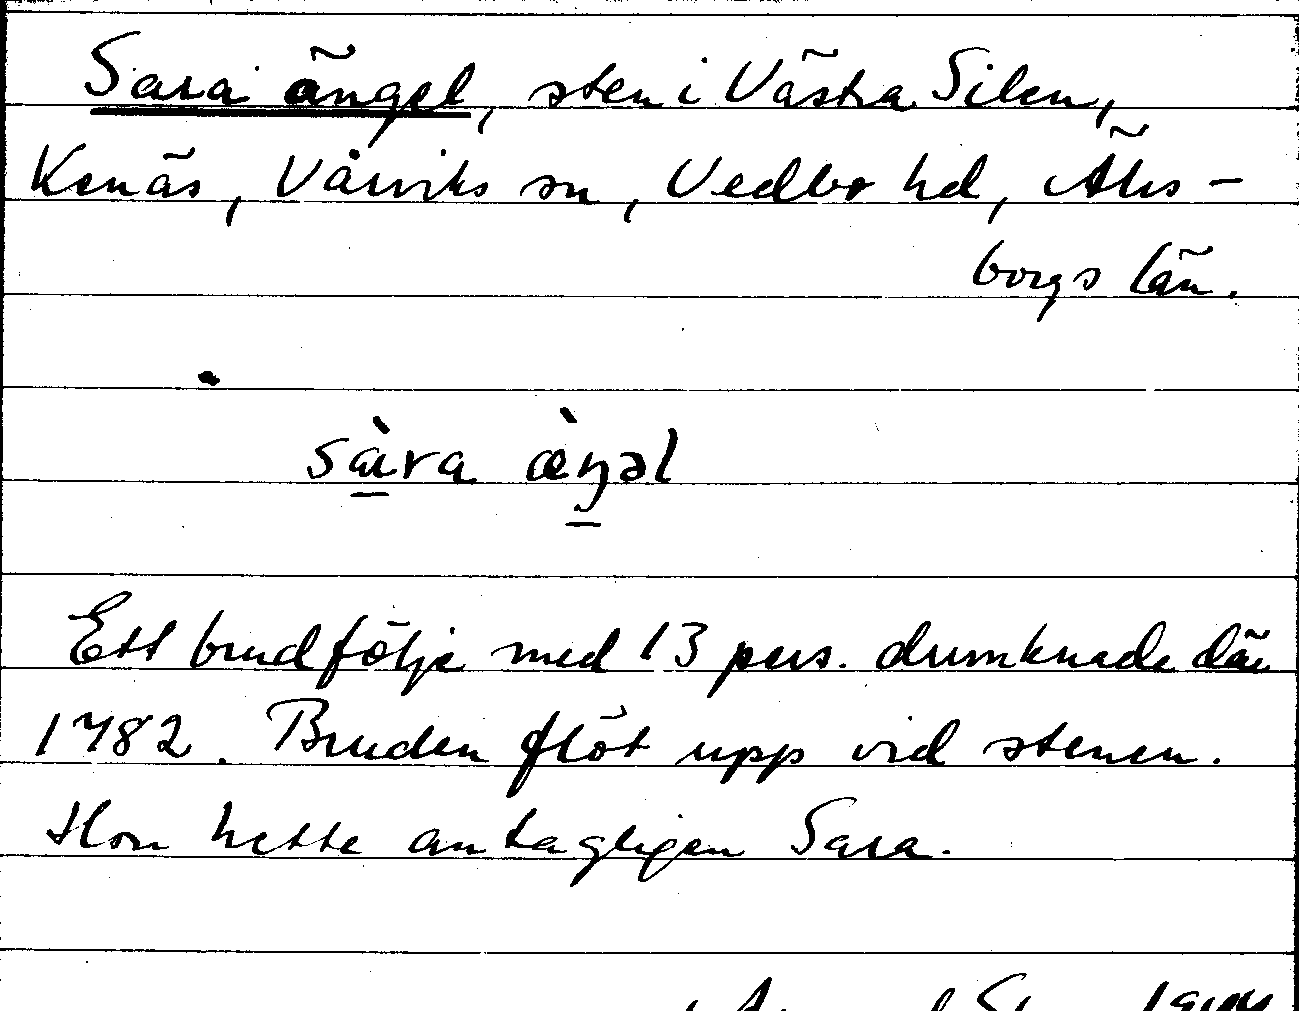 Sara ängel, sten i Västra Silen,
Kenäs, Vårviks sn, Vedbo hd, Älvs-
borgs län.
sàra æ̀ŋəl
Ett brudfölje med 13 pers. drunknade där
1782. Bruden flöt upp vid stenen.
Hon hette antagligen Sara.